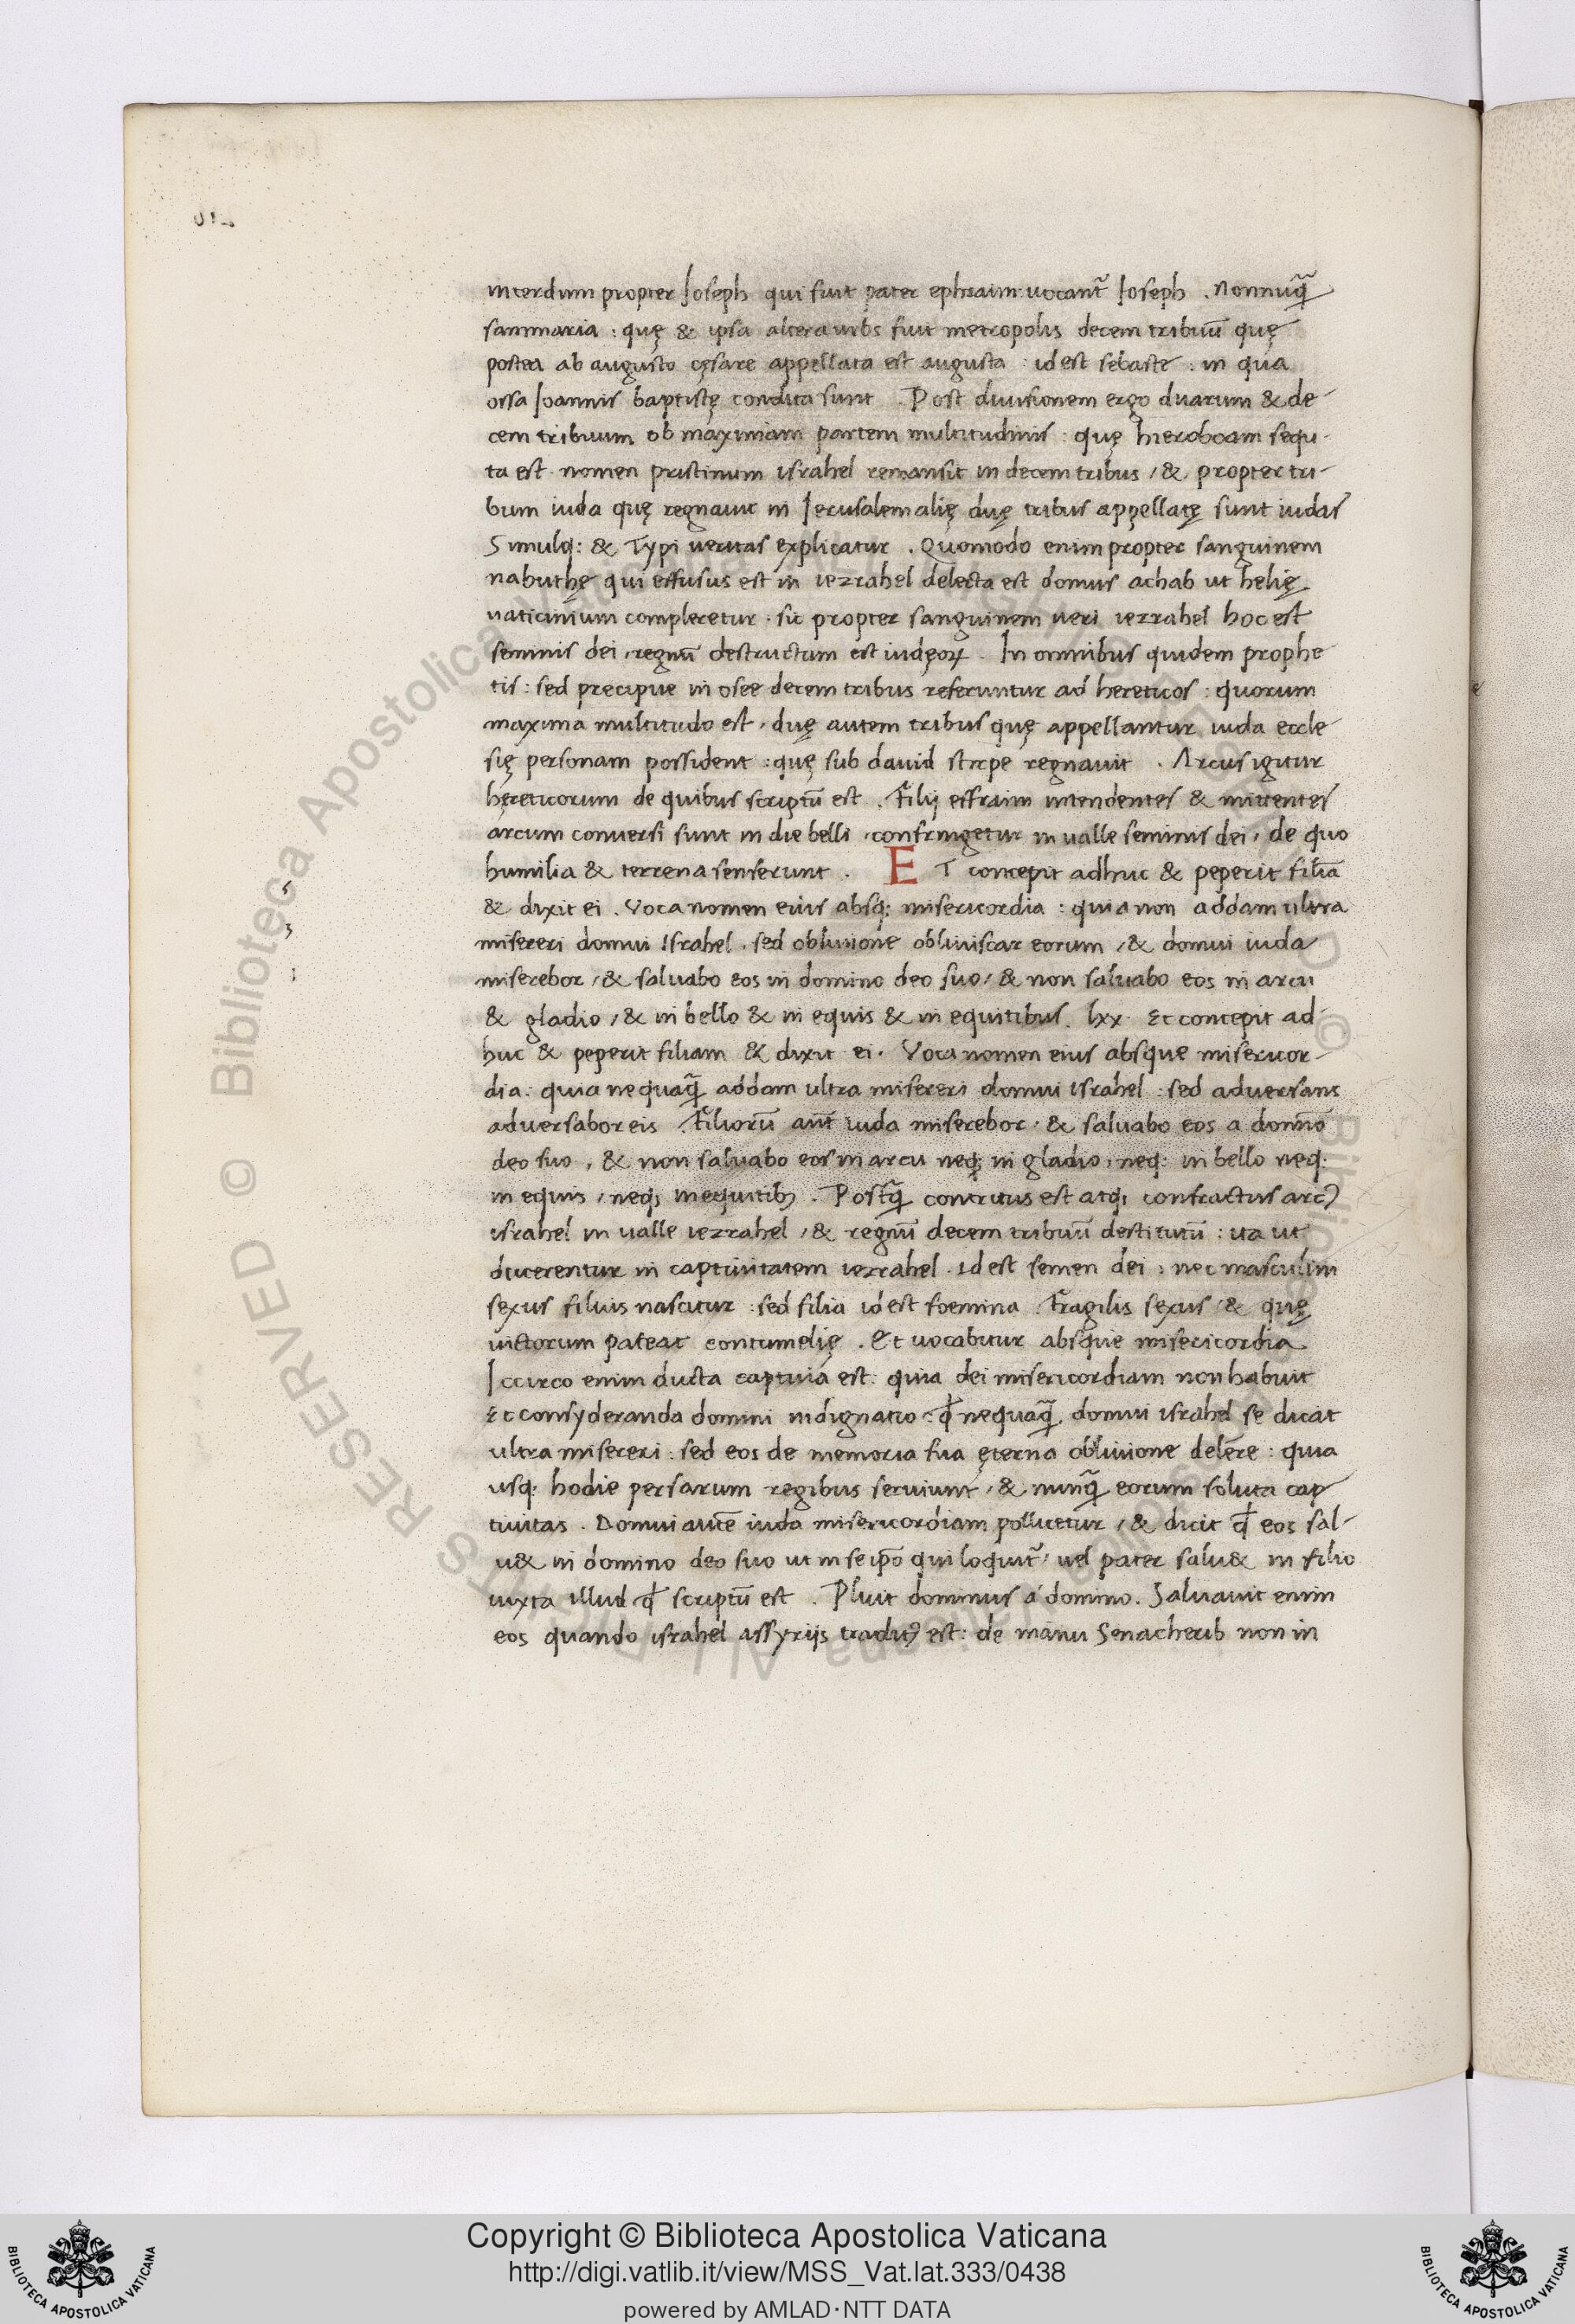 interdum propter Ioseph qui fuit pater ephraim uocant̃ Ioseph . Nonnuq̃
sammaria : quę & ipsa altera urbs fuit metropolis decem tribuũ quę
postea ab augusto cęsare appellata est augusta : id est sebaste : in qua
ossa Ioannis baptistę condita sunt . Post diuisionem ergo duarum & de-
cem tribuum ob maximam partem multitudinis : quę hieroboam sequ-
ta est nomen pristinum israhel remansit in decem tribus , & propter tri-
bum iuda quę regnauit in Ierusalem alię duę tribus appellatę sunt iudas
Simulq: & Typi ueritas explicatur . Quomodo enim propter sanguinem
nabuthę qui effusus est in iezrahel delecta est domus achab ut helię
uaticinium compleretur . sic propter sanguinem ueri iezrahel hoc est
seminis dei , regnũ destructum est iudęoꝝ . In omnibus quidem prophe
tis : sed precipue in osee decem tribus referuntur ad hereticos : quorum
maxima multitudo est , duę autem tribus quę appellantur iuda eccle
się personam possident : quę sub dauid stirpe regnauit . Arcus igitur
hęreticorum de quibus scriptũ est . Filij effraim intendentes & mittentes
arcum conuersi sunt in die belli , confringetur in ualle seminis dei , de quo
humilia & terrena senserunt . E T concepit adhuc & peperit filiã
& dixit ei . Voca nomen eius absq: misericordia : quia non addam ultra
misereri domui Israhel . sed obliuione obliuiscar eorum , & domui iuda
miserebor , & saluabo eos in domino deo suo , & non saluabo eos in arcu
& gladio , & in bello & in equis & in equitibus . lxx . Et concepit ad-
huc & peperit filiam & dixit ei . Voca nomen eius absque misericor-
dia : quia nequaq̃ addam ultra misereri domui israhel : sed aduersans
aduersabor eis . Filiorũ aut̃ iuda miserebor . & saluabo eos a domĩo
deo suo , & non saluabo eos in arcu neq; in gladio , neq: in bello neq:
in equis , neq; in equitibꝫ . Postq̃ contritus est atq; confractus arcꝰ
israhel in ualle iezrahel , & regnũ decem tribuũ destitutũ : ita ut
ducerentur in captiuitatem iezrahel . id est semen dei : nec masculini
sexus filius nascitur : sed filia id est foemina . Fragilis sexus , & quę
uictorum pateat contumelię . Et uocabitur absque misericordia
Iccirco enim ducta captiua est : quia dei misericordiam non habuit
Et consyderanda domini indignatio . ꝙ nequaq̃ domui israhel se dicat
ultra misereri : sed eos de memoria sua ęterna obliuione delere : quia
usq: hodie persarum regibus seruiunt , & nunq̃ eorum soluta cap
tiuitas . Domui autẽ iuda misericordiam pollicetur , & dicit ꝙ eos sal-
u& in domino deo suo ut in se ip̃o qui loquit̃ , uel pater salu& in filio
iuxta illud ꝙ scriptũ est . Pluit dominus a domino . Saluauit enim
eos quando israhel assyrijs traditꝰ est : de manu Senacherib non in
Copyright © Biblioteca Apostolica Vaticana
http://digi.vatlib.it/view/MSS_Vat.lat.333/0438
powered by AMLAD·NTT DATA